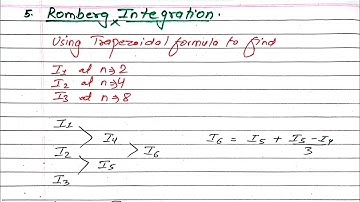 5. Romberg Integration.
Using Trapezoidal formula to find
I1 at n⇒2
I2 at n⇒4
I3 at n⇒8
I1
I4
I2 I6 I6 = I5 + (I5 - I4)/3
I5
I3